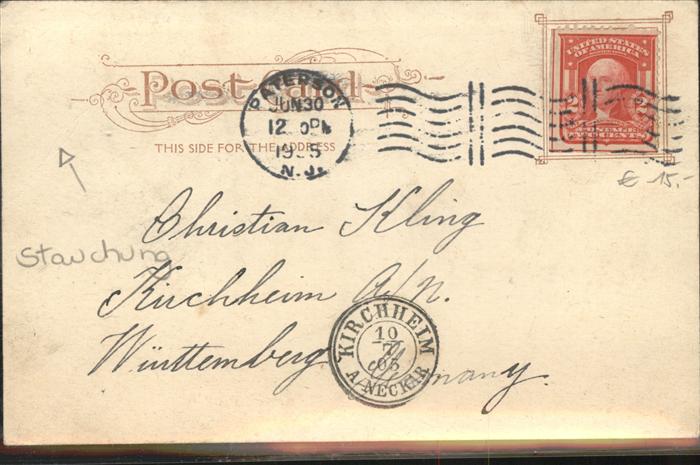 Post Card
THIS SIDE FOR THE ADDRESS
PATERSON
JUN 30
12 PM
1905
N.J.
UNITED STATES
OF AMERICA
2 2
POSTAGE
TWO CENTS
€ 15,-
Christian Kling
Stauchung
Kirchheim a/n.
Württemberg
Germany.
KIRCHHEIM
10
7
05
A/NECKAR